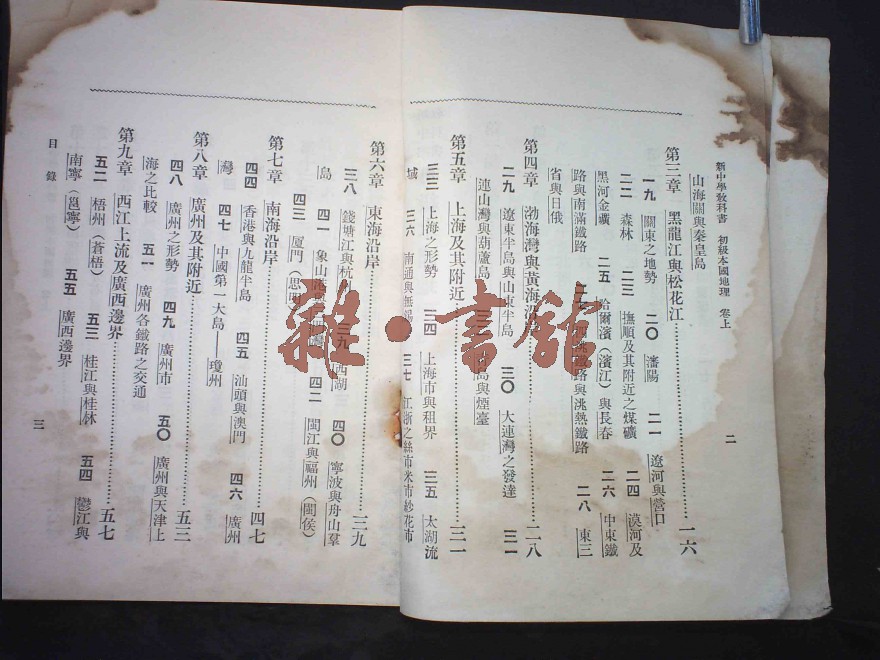 新中學教科書 初級本國地理 卷上
二
山海關與秦皇島
第三章 黑龍江與松花江……一六
一九 關東之地勢 二〇 瀋陽 二一 遼河與營口
二二 森林 二三 撫順及其附近之煤礦 二四 漠河及
黑河金礦 二五 哈爾濱(濱江)與長春 二六 中東鐵
路與南滿鐵路 洮鐵路與洮熱鐵路 二八 東三
省與日俄
第四章 渤海灣與黃海沿岸……二八
二九 遼東半島與山東半島 三〇 大連灣之發達 三一
連山灣與葫蘆島 島與煙臺
第五章 上海及其附近……三一
三三 上海之形勢 三四 上海市與租界 三五 太湖流
域 三六 南通與無錫 三七 江浙之絲市米市紗花市
第六章 東海沿岸……三九
三八 錢塘江與杭州 三九 西湖 四〇 寧波與舟山羣
島 四一 象山港 四二 閩江與福州(閩侯)
四三 厦門(思明)
第七章 南海沿岸……四七
四四 香港與九龍半島 四五 汕頭與澳門 四六 廣州
灣 四七 中國第一大島——瓊州
第八章 廣州及其附近……五三
四八 廣州之形勢 四九 廣州市 五〇 廣州與天津上
海之比較 五一 廣州各鐵路之交通
第九章 西江上流及廣西邊界……五七
五二 梧州(蒼梧) 五三 桂江與桂林 五四 鬱江與
南寧(邕寧) 五五 廣西邊界
目錄
三
雜·書館